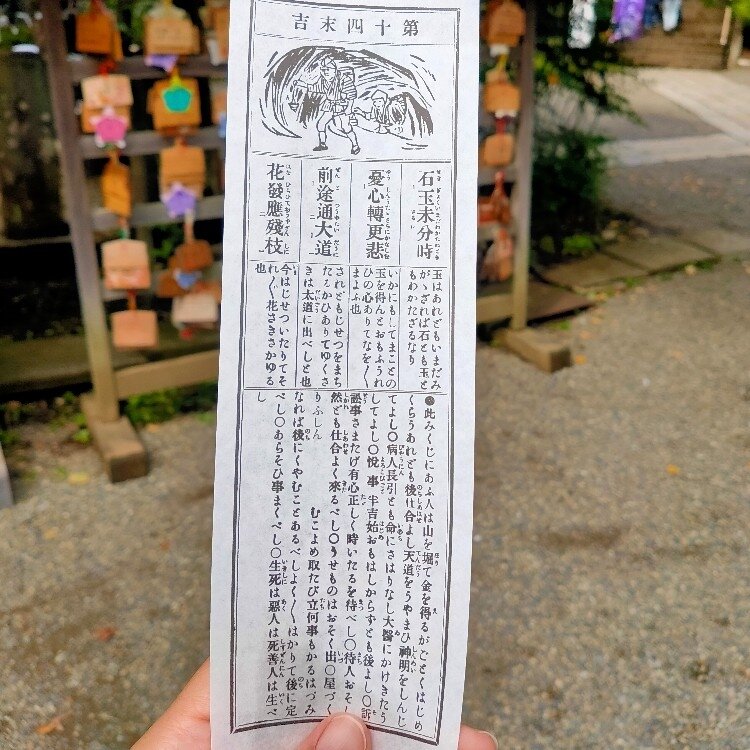 第十四末吉
石玉未分時
憂心轉更悲
前途通大道
花發應殘枝
玉はあれどもいまだみ
がゝざれば石とも玉と
もわかたざるなり
いかにもしてまことの
玉を得んとおもふうれ
ひの心ありてなを〳〵
まよふ也
されどもじせつをまち
たるかひありてゆくさ
きは太道に出べしと也
今はじせついたりてそ
れ〳〵花さきさかゆる
也
●此みくじにあふ人は山を堀て金を得るがごとくはじめ
くらうあれども後仕合よし天道をうやまひ神明をしんじ
てよし〇病人長引とも命にさはりなし大醫にかけきたう
してよし〇悅事半吉始おもはしからずとも後よし〇訴
訟事さまたげ有心正しく時いたるを待べし〇待人おそし
然ども仕合よく來るべし〇うせものはおそく出〇屋づく
りふしん むこよめ取たび立何事もかるはづみ
なれば後にくやむことあるべしよく〳〵はかりて後に定
べし〇あらそひ事まくべし〇生死は惡人は死善人は生べ
し